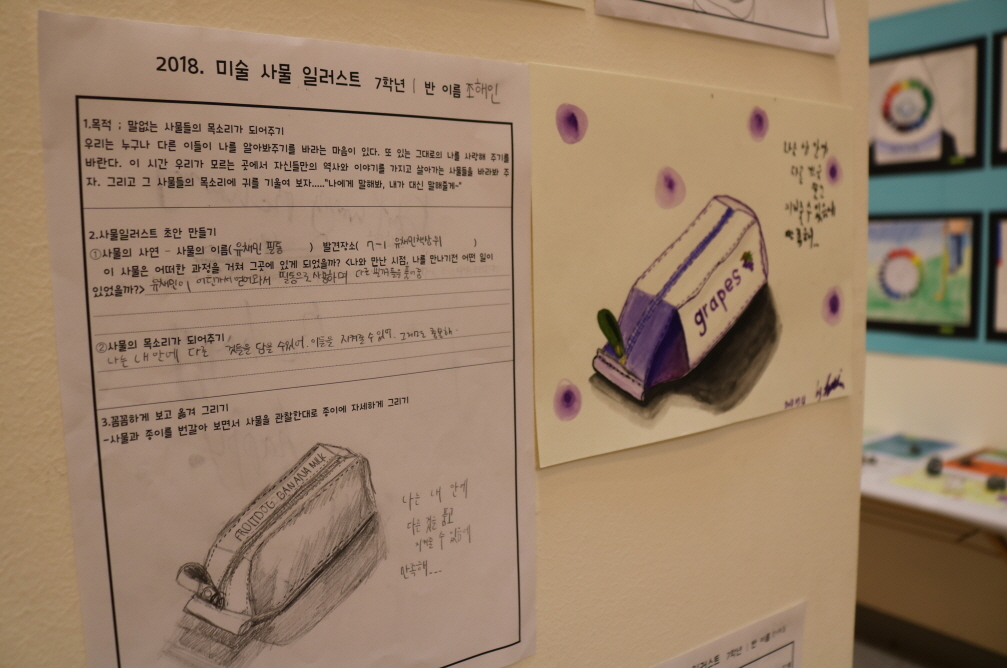 2018. 미술 사물 일러스트 7학년 | 반 이름 조해인
1.목적 ; 말없는 사물들의 목소리가 되어주기
우리는 누구나 다른 이들이 나를 알아봐주기를 바라는 마음이 있다. 또 있는 그대로의 나를 사랑해 주기를
바란다. 이 시간 우리가 모르는 곳에서 자신들만의 역사와 이야기를 가지고 살아가는 사물들을 바라봐 주
자. 그리고 그 사물들의 목소리에 귀를 기울여 보자....."나에게 말해봐, 내가 대신 말해줄게~"
2.사물일러스트 초안 만들기
①사물의 사연 - 사물의 이름(유채민 필통 ) 발견장소( 7-1 유채민책상위 )
이 사물은 어떠한 과정을 거쳐 그곳에 있게 되었을까? <나와 만난 시점, 나를 만나기전 어떤 일이
있었을까?> 유채민이 어딘가서 얻어와서 필통으로 사용하며
②사물의 목소리가 되어주기
나는 내 안에 다른 것들을 담을 수 있어. 이들을 지켜줄 수 있어.
3.꼼꼼하게 보고 옮겨 그리기
-사물과 종이를 번갈아 보면서 사물을 관찰한대로 종이에 자세하게 그리기
BANANA MILK
나는 내 안에
다른 것을 품고
지켜줄 수 있음에
만족해...
나는 내 안에
다른 것을
품고
지켜줄 수 있음에
만족해...
grapes
by
일러스트 7학년 | 반 이름